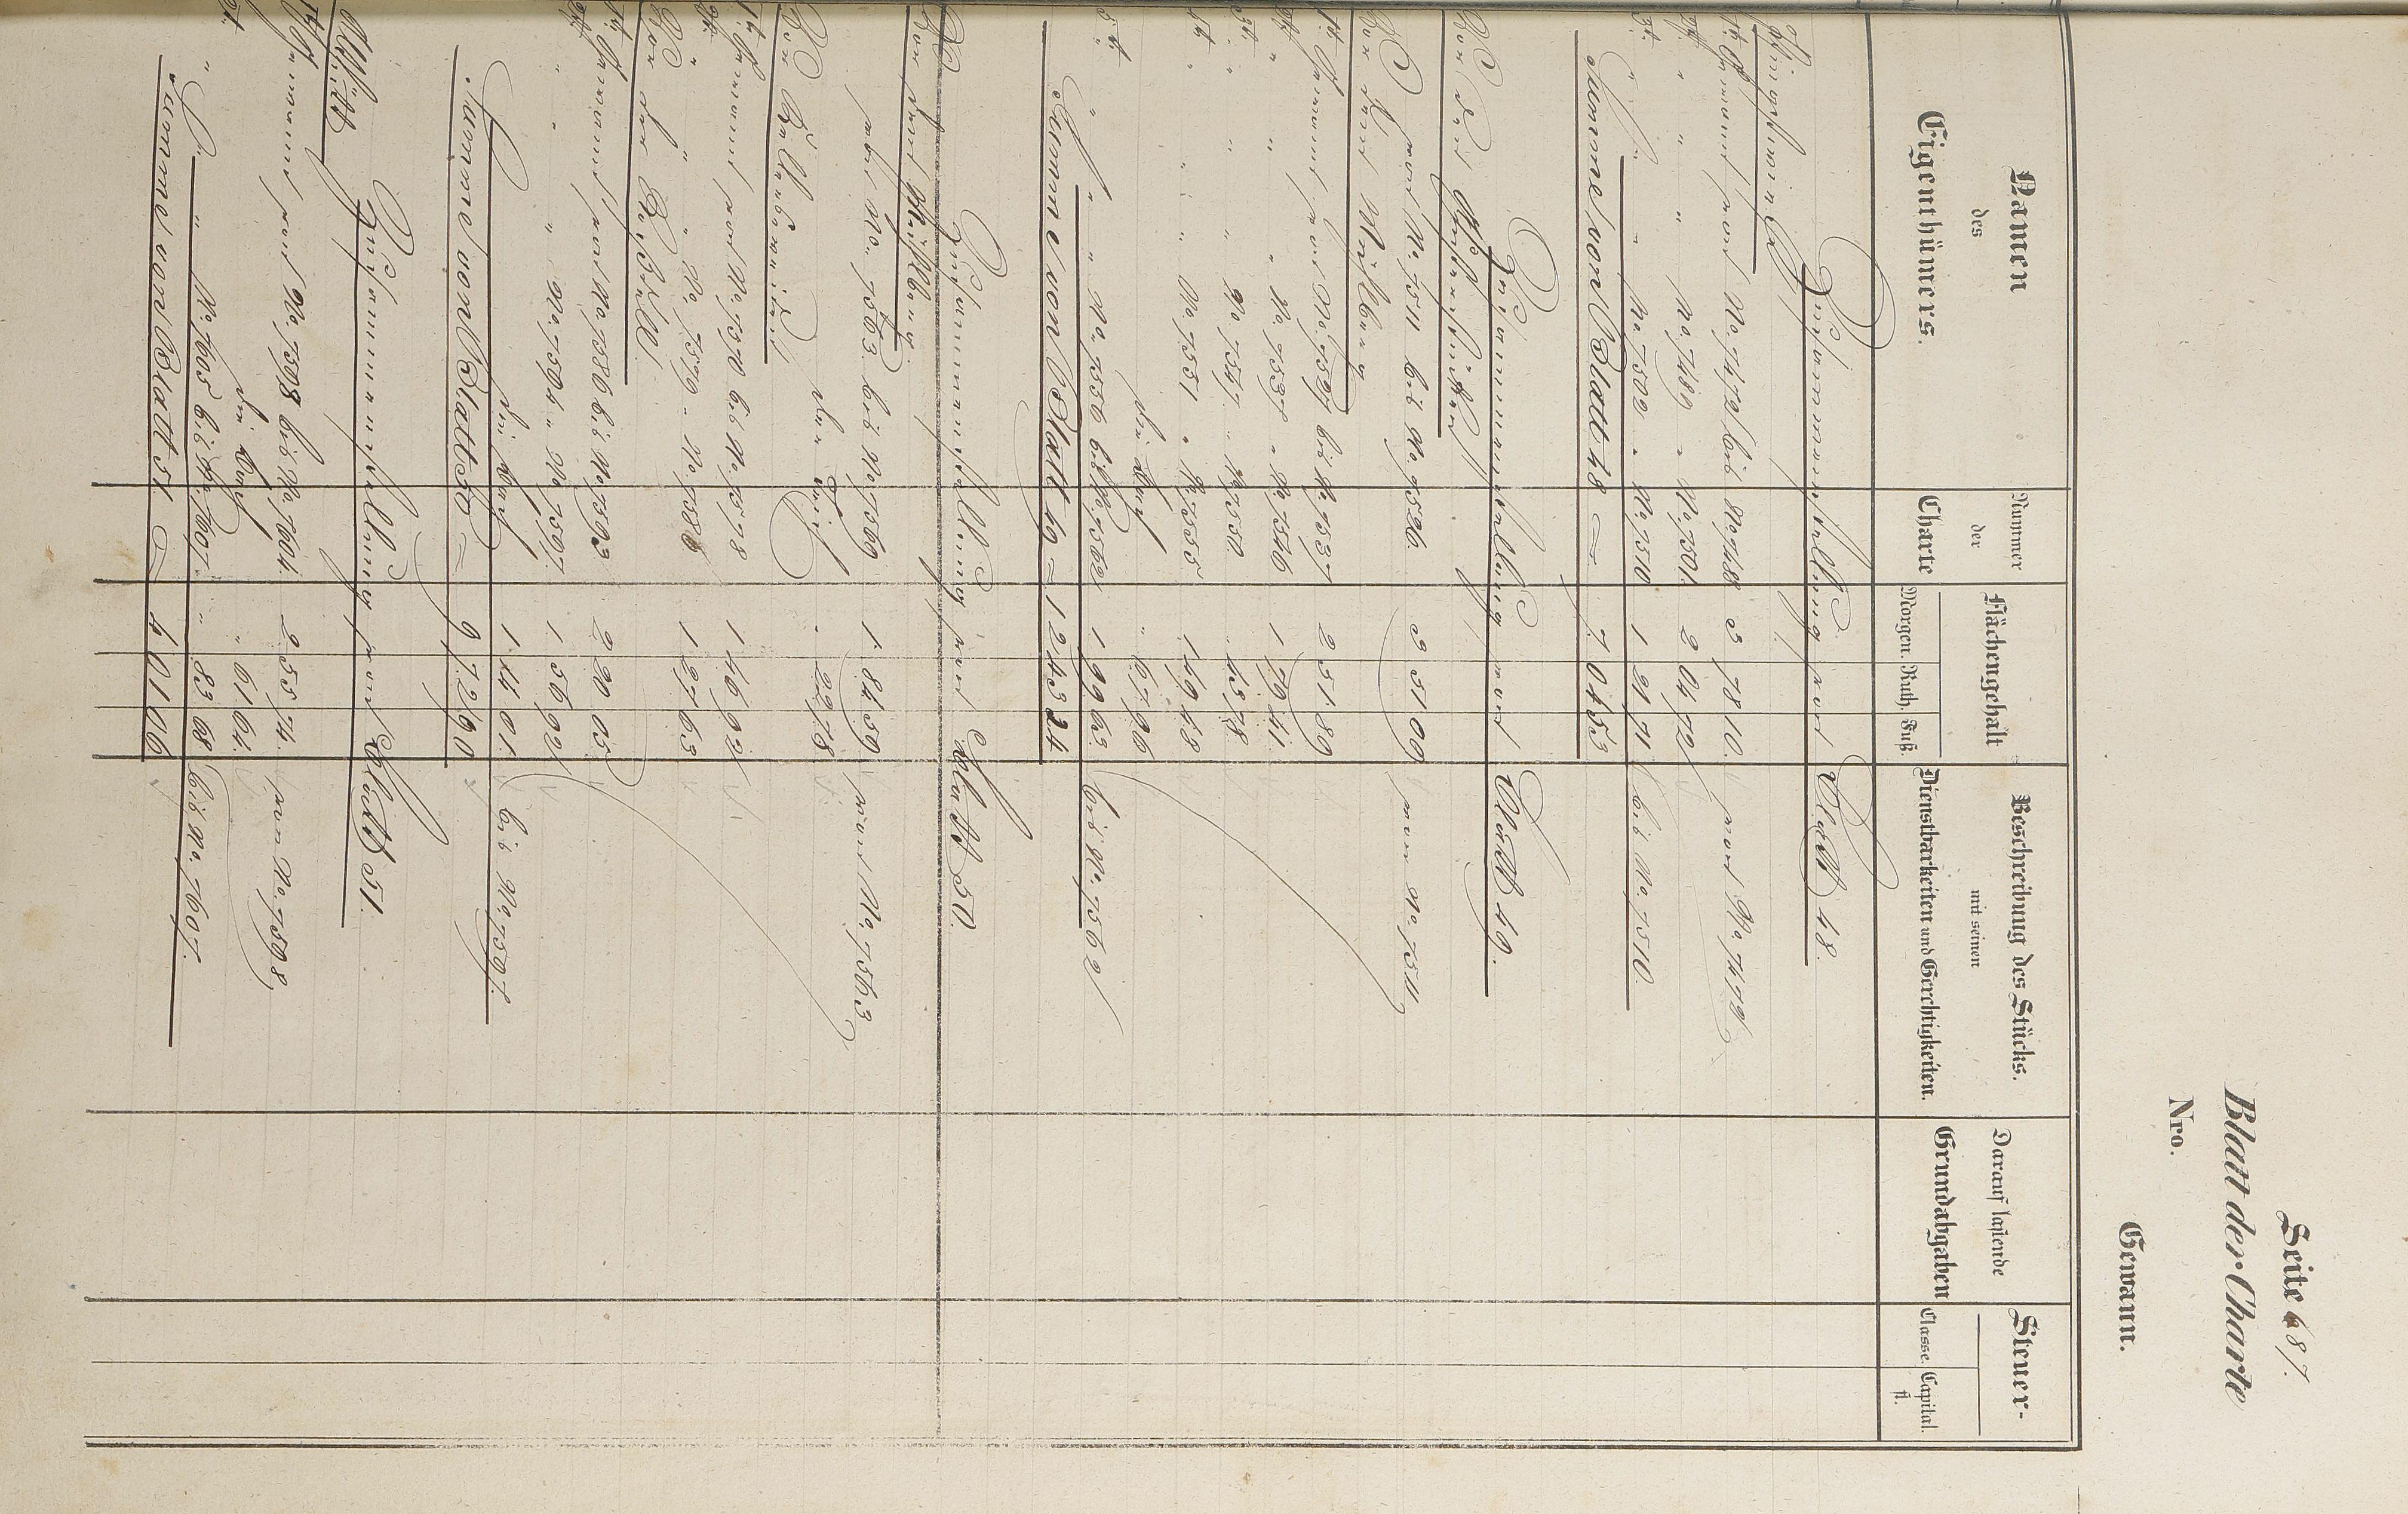 Seite 687.
Blatt der Charte
Nro.
Gewann.
Namen des Eigenthümers.
Nummer der Charte
Flächengehalt
Morgen. Ruth. Fuß.
Beschreibung des Stücks.
mit seinen
Dienstbarkeiten und Gerechtigkeiten.
Darauf lastende Grundabgaben
Steuer-
Classe. Capital. fl.
Zusammenstellung von Blatt 48.
1te. Gewann von No. 7472 bis No. 7488 3 78 10. von No. 7472
2te. " " " No. 7489 " No. 7501. 2 04 72
3te. " " " No. 7502 " No. 7510 1 21 71 bis No. 7510.
Summe von Blatt 48 = 7. 04 53
Zusammenstellung von Blatt 49.
von No. 7511 bis No. 7526. 3 51 09 von No. 7511.
1te. Gewann von No. 7527 bis No. 7537 2 51 89
2te. " " " No. 7537 " No. 7546 1 79 41.
3te. " " " No. 7547 " No. 7550. " 43 78
4te. " " " No. 7551 " No. 7555 1 49 48
die durch " 67 96
5te. " " " No. 7556 bis No. 7562 1 99 63. bis No. 7562
Summe von Blatt 49 = 12 43 24
Zusammenstellung von Blatt 50.
von No. 7563 bis No. 7569 1 84 59 von No. 7563
" 22 78
1te. Gewann von No. 7570 bis No. 7578 1 46 92
2te. " " No. 7579 " No. 7585 1 27 63
1te. Gewann von No. 7586 bis No. 7593 2 20 05
2te. " " No. 7594 " No. 7597. 1 56 92
1 14 01. bis No. 7597.
Summe von Blatt 50 = 9 72 90
Zusammenstellung von Blatt 51.
1te. Gewann von No. 7598 bis No. 7604. 2 55 74. von No. 7598
" 61 64.
2te. " " No. 7605 bis No. 7607. " 83 68 bis No. 7607.
Summe von Blatt 51. = 4 01 06